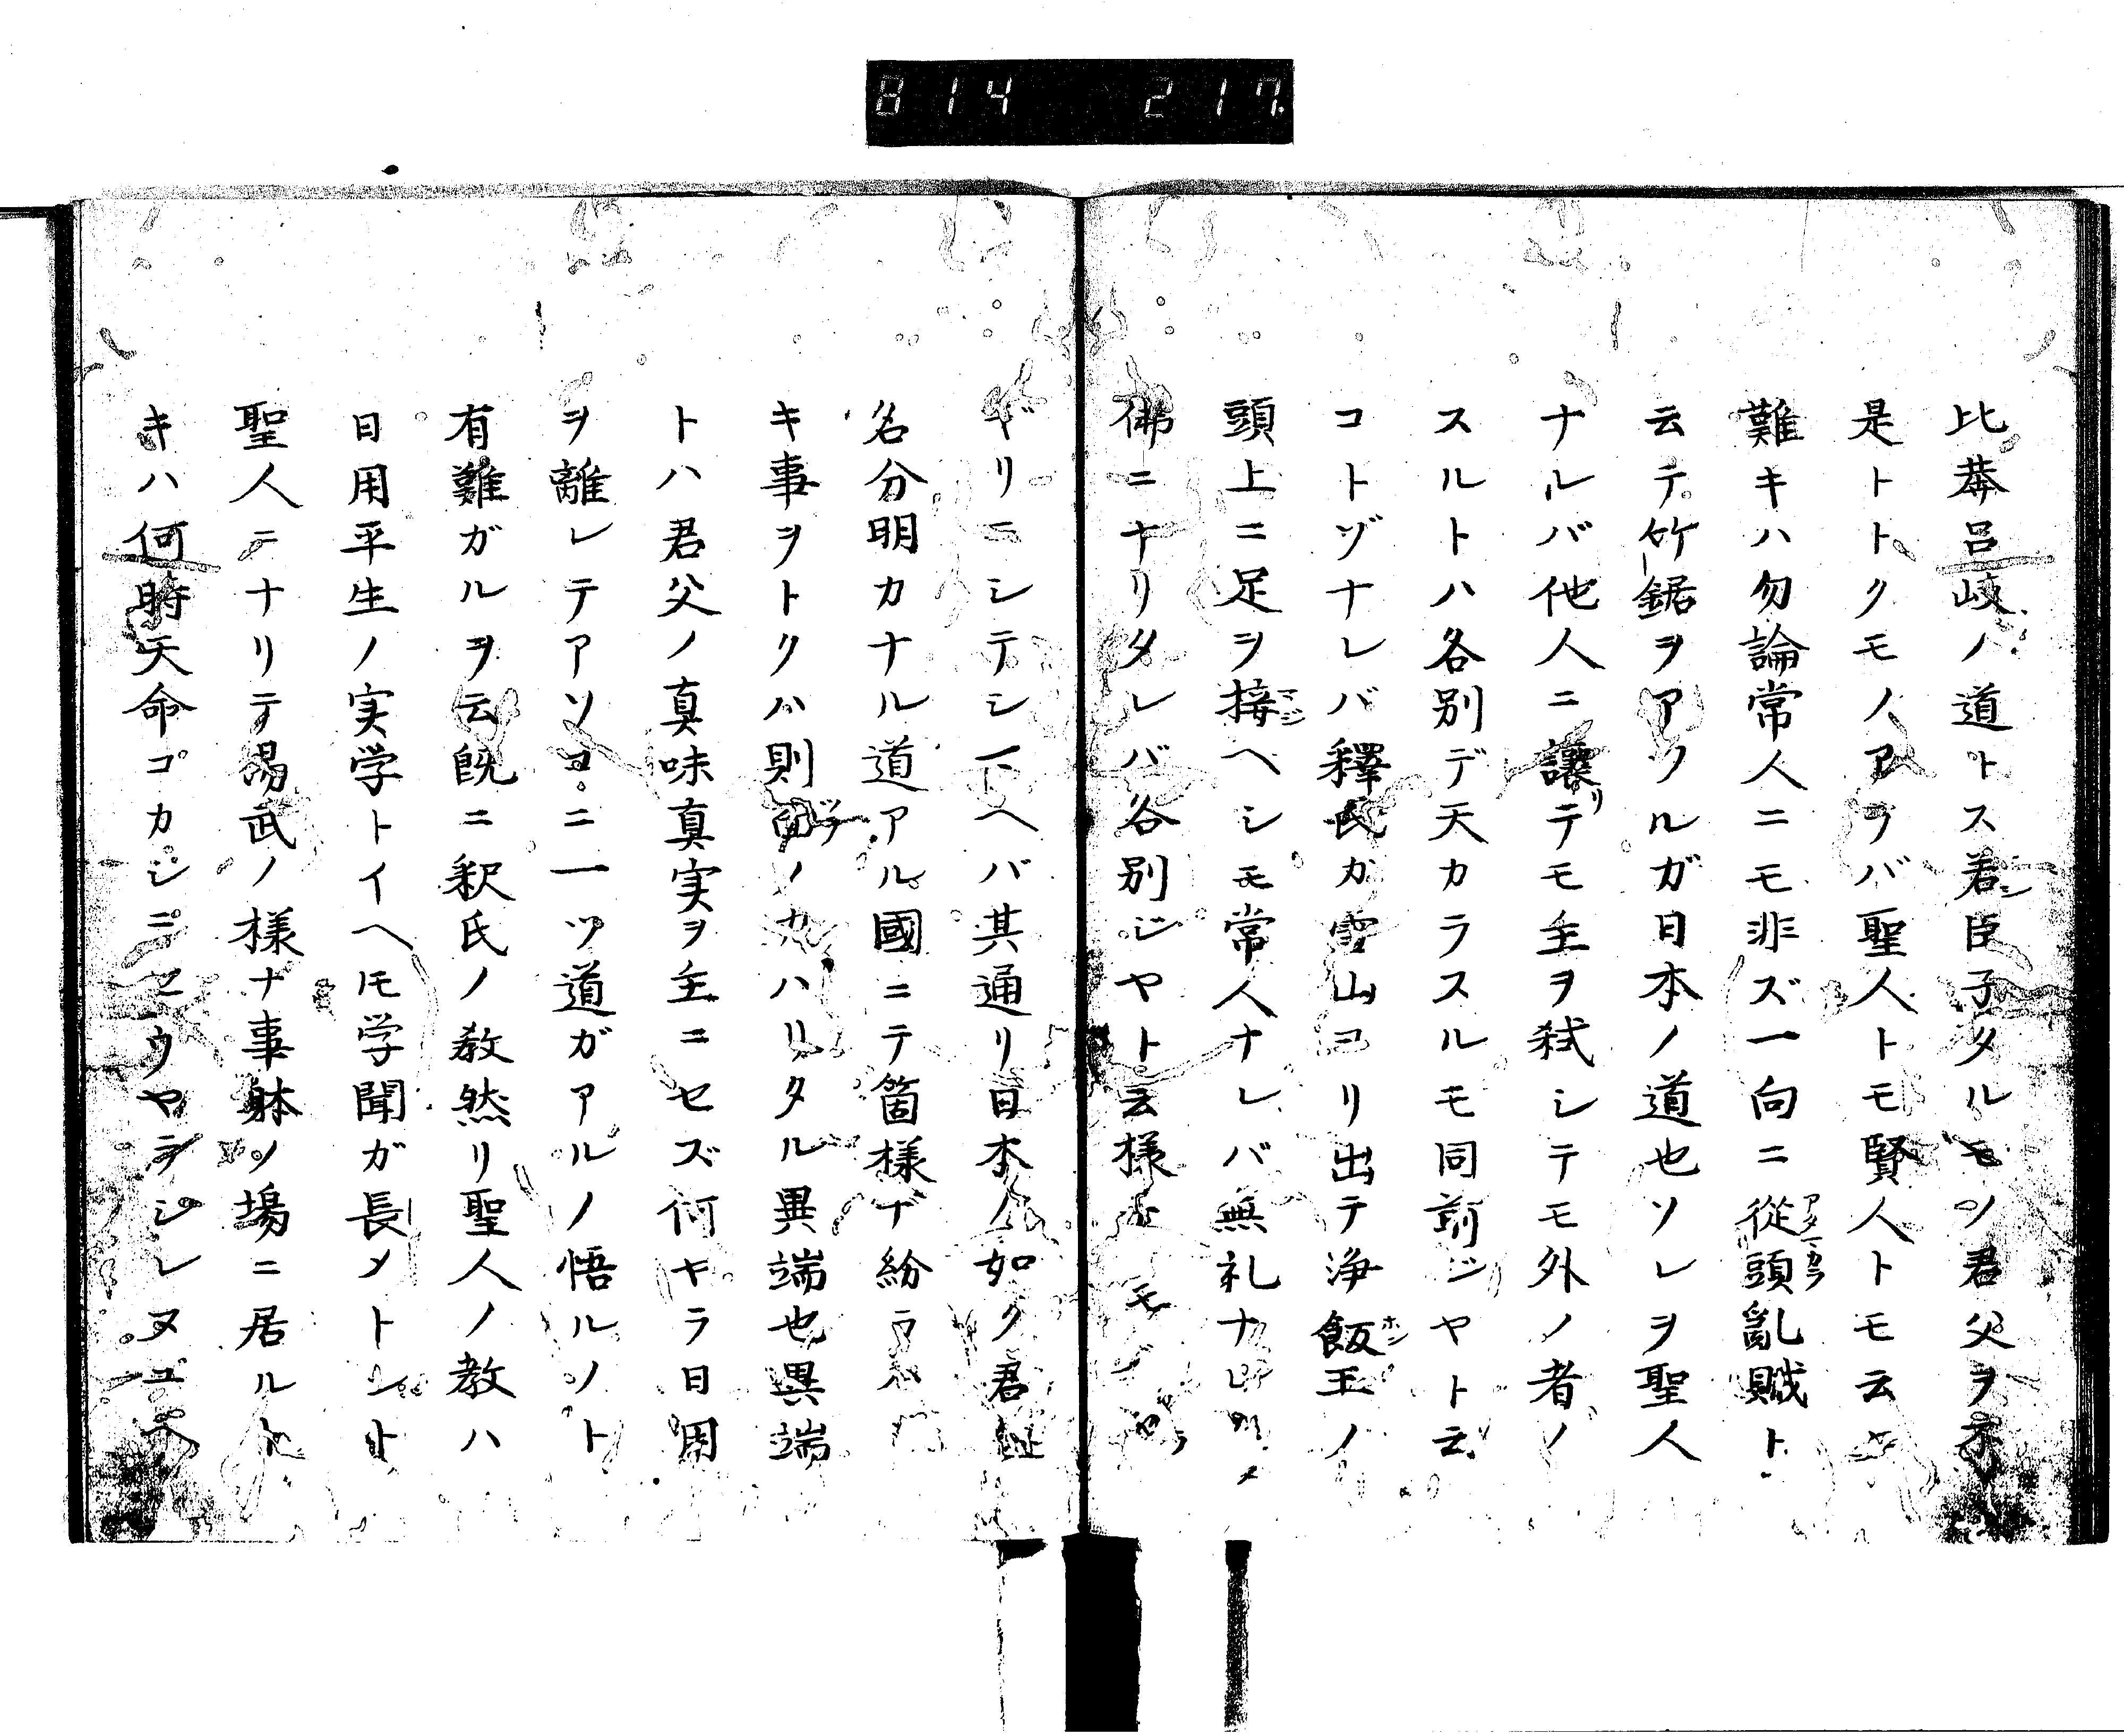 814 217
比莽呂岐ノ道トス君臣子タルモノ君父ヲ
是トトクモノアラバ聖人トモ賢人トモ云
難キハ勿論常人ニモ非ズ一向ニ從頭亂賊ト
云テ竹鋸ヲアツルガ日本ノ道也ソレヲ聖人
ナルバ他人ニ讓リテモ主ヲ弑シテモ外ノ者ノ
スルトハ各別デ天カラスルモ同前ジヤト云
コトヅナレバ釋氏カ雪山ヨリ出テ浄飯王ノ
頭上ニ足ヲ接ヘシモ常人ナレバ無礼ナレ
佛ニナリタレバ各別ジヤト云様
ギリニシテシ下ヘバ其通リ日本ノ如ク君
名分明カナル道アル國ニテ箇様ナ紛ラ
キ事ヲトクハ則ノカハリタル異端也異端
トハ君父ノ真味真実ヲ主ニセズ何キラ日用
ヲ離レテアソコニ一ツ道ガアルノ悟ルソト
有難ガルヲ云既ニ釈氏ノ教然リ聖人ノ教ハ
日用平生ノ実学トイヘ𪜈学聞ガ長メト
聖人テナリテ湯武ノ様ナ事躰ノ場ニ居ルト
キハ何時天命ゴカシニセウヤラシレヌユヘ